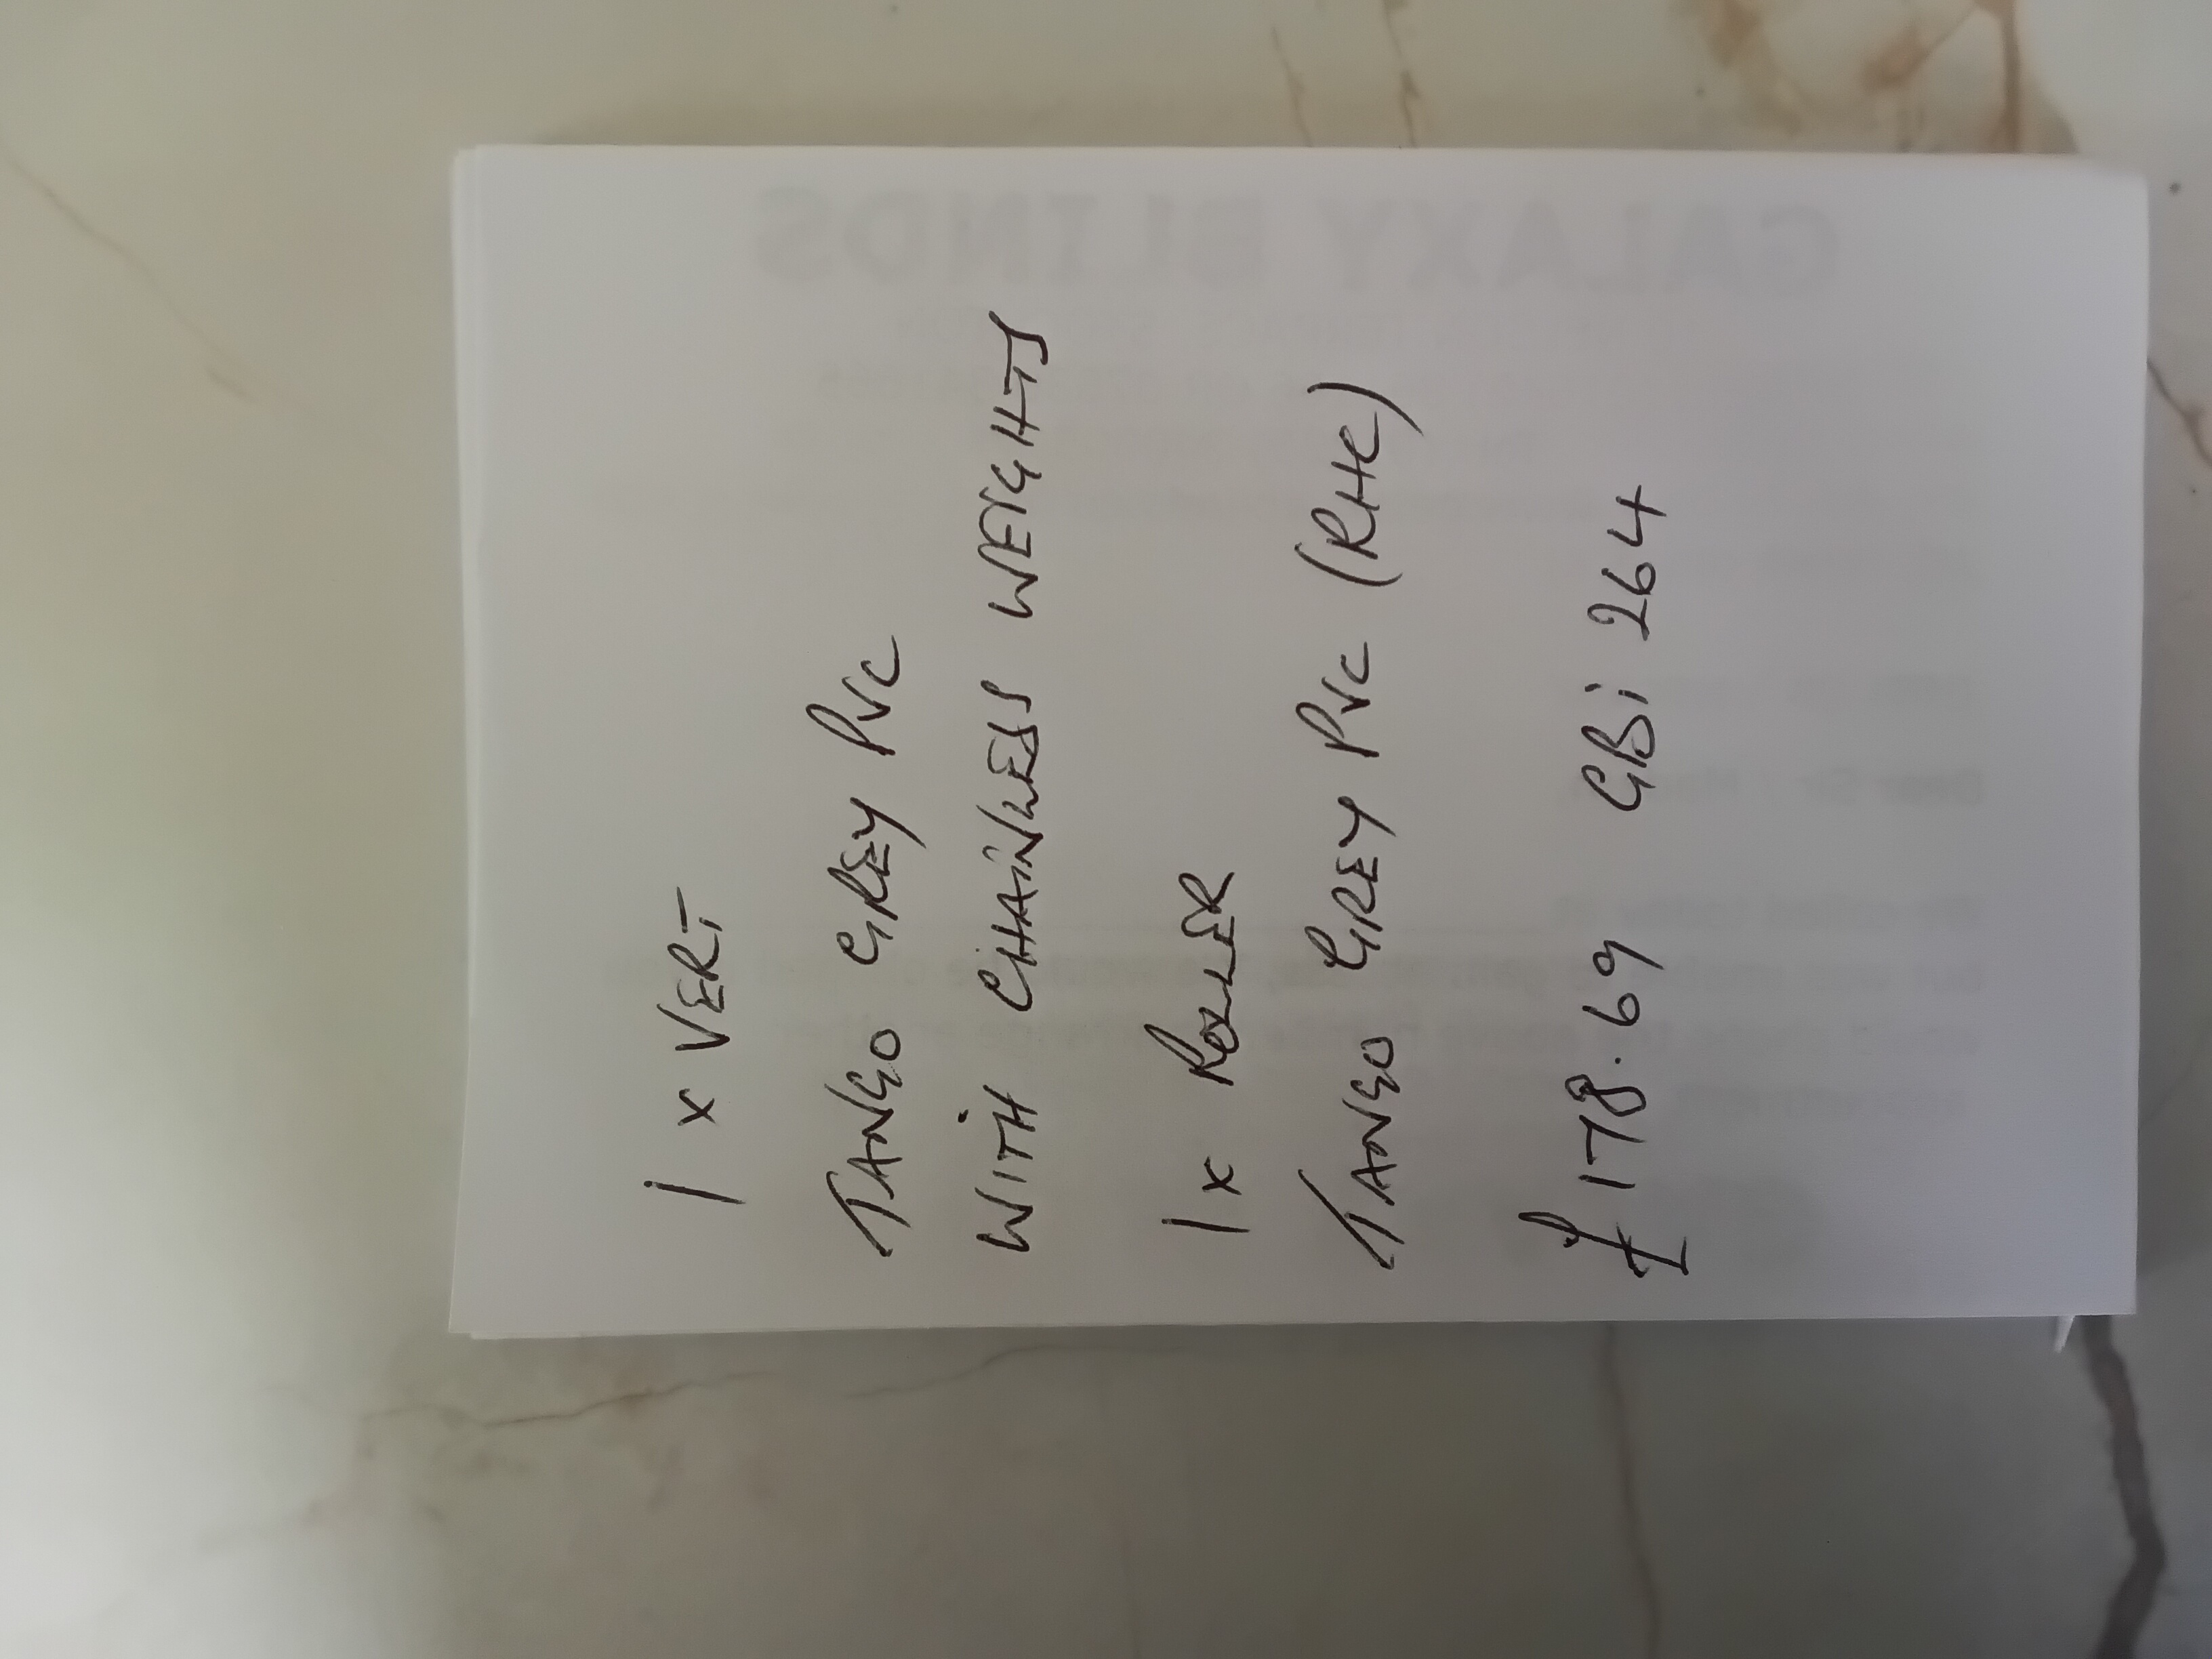 1 x VERT
TANGO GREY PVC
WITH CHAINLESS WEIGHTS
1 x ROLLER
TANGO GREY PVC (RHC)
£178.69 GBi 264
GALAXY BLINDS